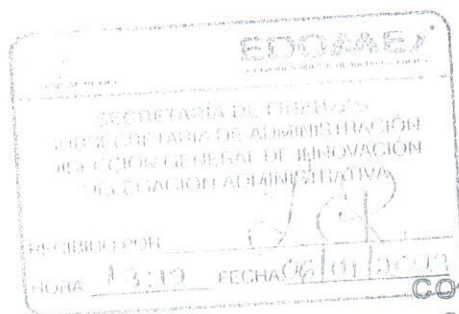 EDOMEX
SECRETARÍA DE FINANZAS
SUBSECRETARIA DE ADMINISTRACIÓN
DIRECCIÓN GENERAL DE INNOVACIÓN
DELEGACIÓN ADMINISTRATIVA
RECIBIDO POR
HORA 13:19 FECHA 06/01/2023
CO